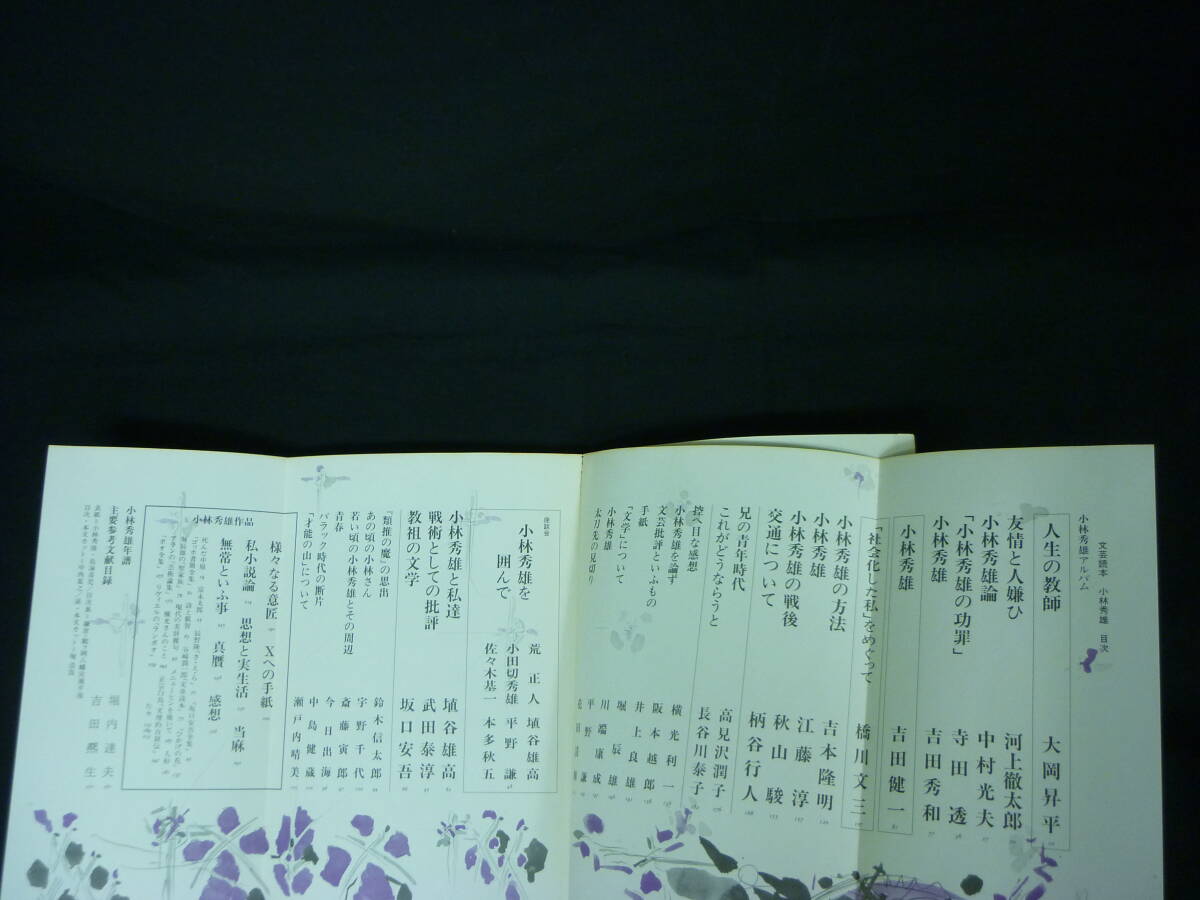 文芸読本 小林秀雄 目次
小林秀雄アルバム
人生の教師 大岡昇平
友情と人嫌ひ 河上徹太郎
小林秀雄論 中村光夫
「小林秀雄の功罪」 寺田透
小林秀雄 吉田秀和
小林秀雄 吉田健一
「社会化した私」をめぐって 橋川文三
小林秀雄の方法 吉本隆明
小林秀雄 江藤淳
小林秀雄の戦後 秋山駿
交通について 柄谷行人
兄の青年時代 高見沢潤子
これがどうならうと 長谷川泰子
控へ目な感想 横光利一
小林秀雄を論ず 阪本越郎
文芸批評といふもの 井上良雄
手紙 堀辰雄
「文学」について 川端康成
小林秀雄 平野謙
太刀先の見切り
座談会
小林秀雄を
囲んで
荒正人 埴谷雄高
小田切秀雄 平野謙
佐々木基一 本多秋五
小林秀雄と私達 埴谷雄高
戦術としての批評 武田泰淳
教祖の文学 坂口安吾
「類推の魔」の思出 鈴木信太郎
あの頃の小林さん 宇野千代
若い頃の小林秀雄とその周辺 斎藤寅郎
青春 今日出海
バラック時代の断片 中島健蔵
「才能の山」について 瀬戸内晴美
小林秀雄作品
様々なる意匠 Xへの手紙
私小説論 思想と実生活 当麻
無常といふ事 真贋 感想
小林秀雄年譜 堀内達夫
主要参考文献目録 吉田凞生